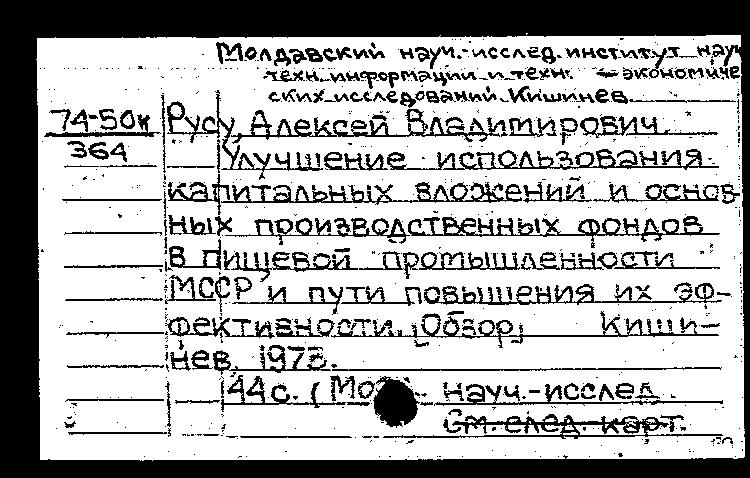 Молдавский науч.-исслед. институт науч
техн. информации и техн. - экономиче
ских исследований. Кишинев
74-50к
364
Русу, Алексей Владимирович.
Улучшение использования
капитальных вложений и основ-
ных производственных фондов
в пищевой промышленности
МССР и пути повышения их эф-
фективности. [Обзор] Киши-
нев. 1973.
44 с. (Мо науч.-исслед.
См. след. карт.